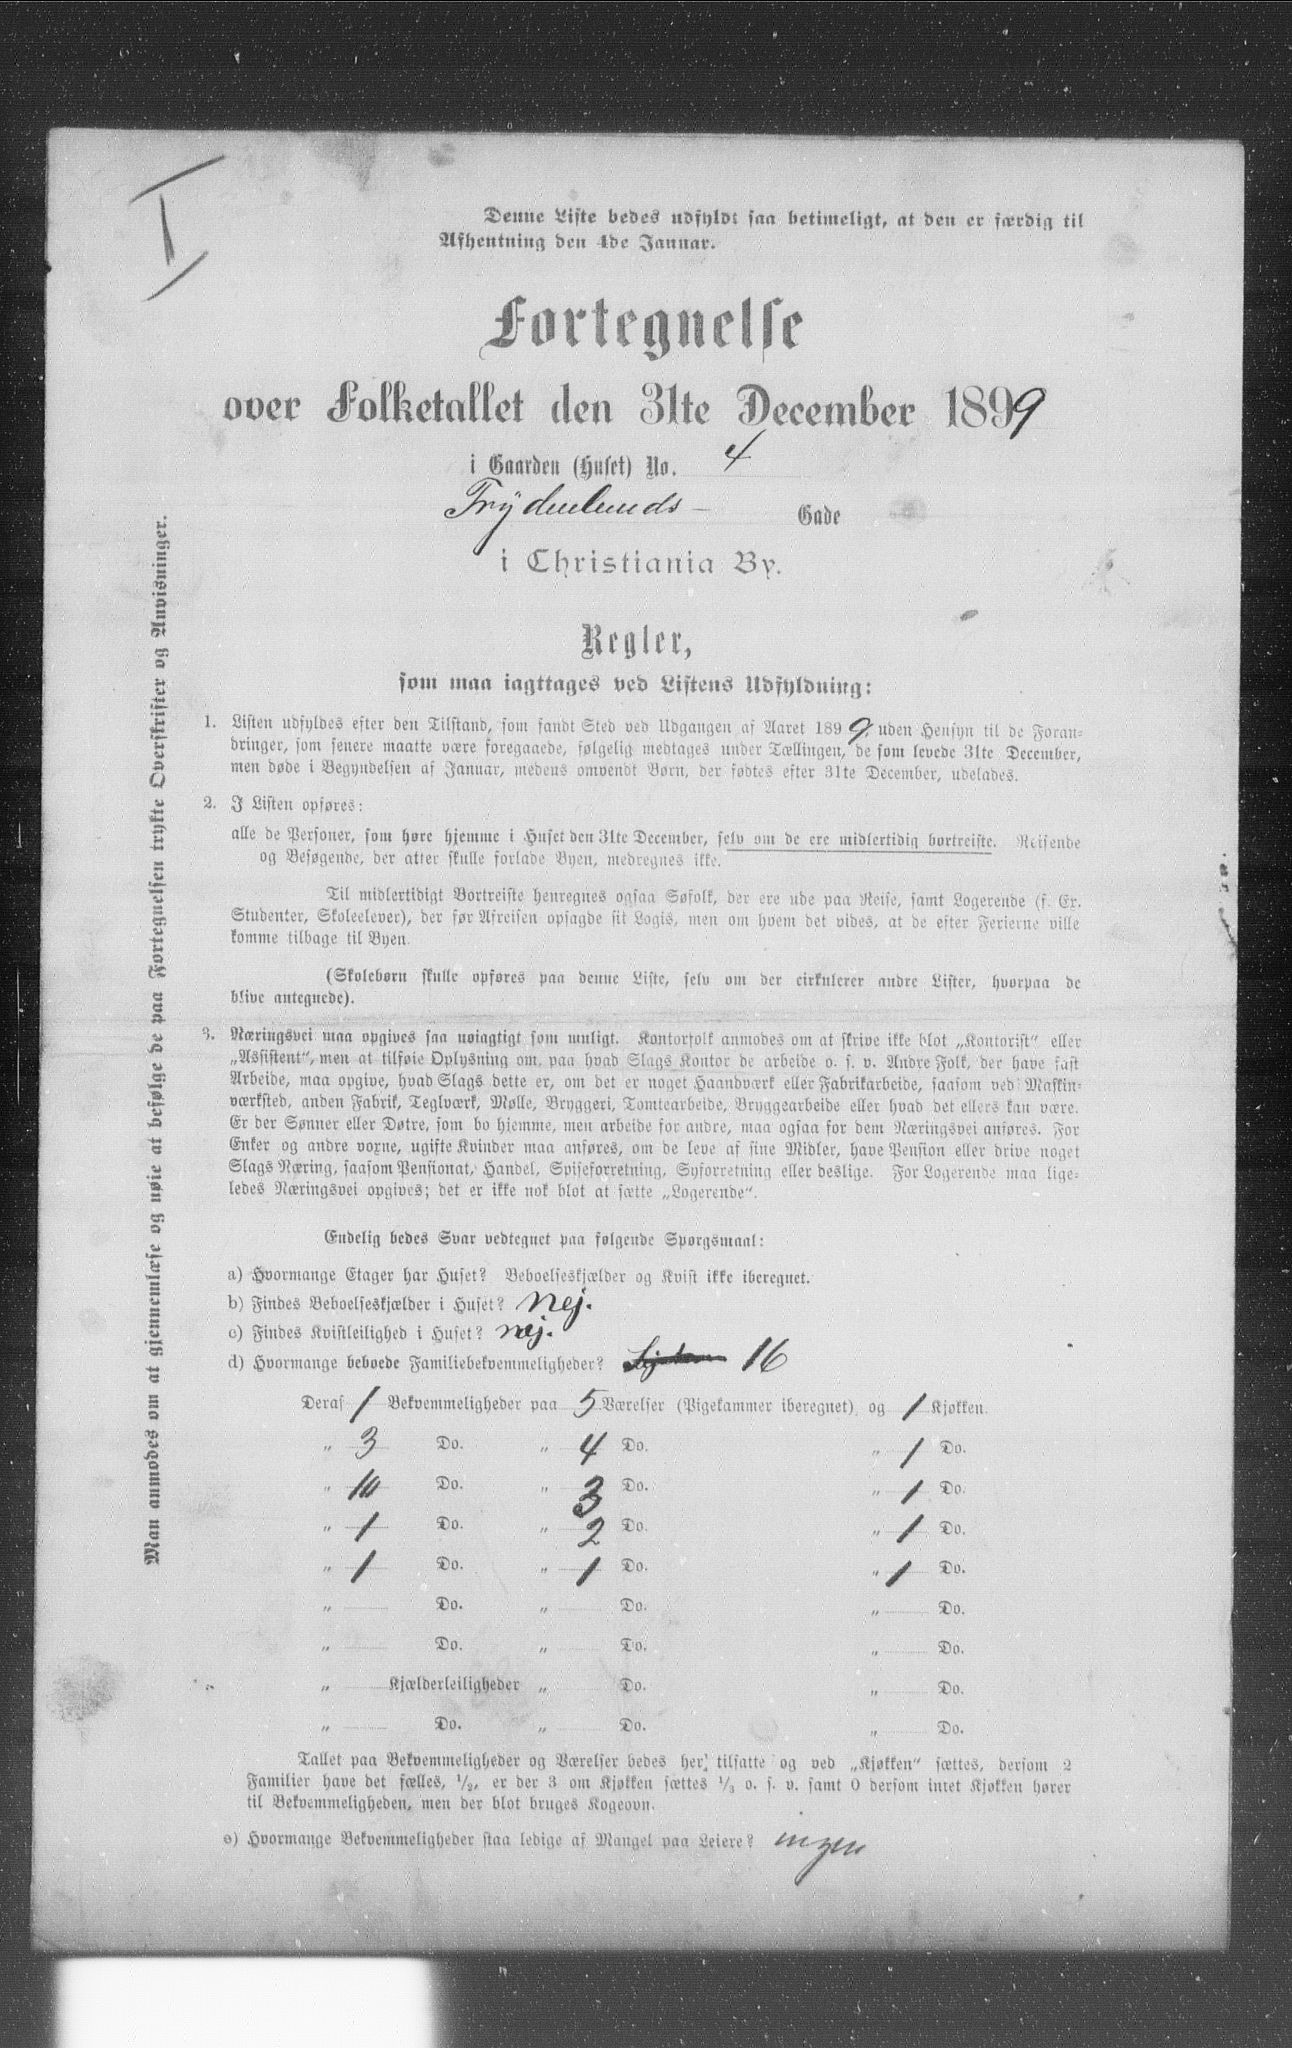 I
Denne Liste bedes udfyldt saa betimeligt, at den er færdig til
Afhentning den 4de Januar.
Fortegnelse
over Folketallet den 31te December 1899
i Gaarden (Huset) No. 4
Frydenlunds- Gade
i Christiania By.
Regler,
som maa iagttages ved Listens Udfyldning:
1. Listen udfyldes efter den Tilstand, som fandt Sted ved Udgangen af Aaret 1899, uden Hensyn til de Foran-
dringer, som senere maatte være foregaaede, følgelig medtages under Tællingen, de som levede 31te December,
men døde i Begyndelsen af Januar, medens omvendt Børn, der fødtes efter 31te December, udelades.
2. I Listen opføres:
alle de Personer, som høre hjemme i Huset den 31te December, selv om de ere midlertidig bortreiste. Reisende
og Besøgende, der atter skulle forlade Byen, medregnes ikke.
Til midlertidigt Bortreiste henregnes ogsaa Søfolk, der ere ude paa Reise, samt Logerende (f. Ex.
Studenter, Skoleelever), der før Afreisen opsagde sit Logis, men om hvem det vides, at de efter Ferierne ville
komme tilbage til Byen.
(Skolebørn skulle opføres paa denne Liste, selv om der cirkulerer andre Lister, hvorpaa de
blive antegnede).
3. Næringsvei maa opgives saa nøiagtigt som muligt. Kontorfolk anmodes om at skrive ikke blot „Kontorist“ eller
„Assistent“, men at tilføie Oplysning om, paa hvad Slags Kontor de arbeide o. s. v. Andre Folk, der have fast
Arbeide, maa opgive, hvad Slags dette er, om det er noget Haandværk eller Fabrikarbeide, saasom ved Maskin-
værksted, anden Fabrik, Teglværk, Mølle, Bryggeri, Tomtearbeide, Bryggearbeide eller hvad det ellers kan være.
Er der Sønner eller Døtre, som bo hjemme, men arbeide for andre, maa ogsaa for dem Næringsvei anføres. For
Enker og andre voxne, ugifte Kvinder maa anføres, om de leve af sine Midler, have Pension eller drive noget
Slags Næring, saasom Pensionat, Handel, Spiseforretning, Syforretning eller deslige. For Logerende maa lige-
ledes Næringsvei opgives; det er ikke nok blot at sætte „Logerende“.
Endelig bedes Svar vedtegnet paa følgende Spørgsmaal:
a) Hvormange Etager har Huset? Beboelseskjælder og Kvist ikke iberegnet.
b) Findes Beboelseskjælder i Huset? Nej.
c) Findes Kvistleilighed i Huset? nej.
d) Hvormange beboede Familiebekvemmeligheder? 16
Deraf 1 Bekvemmeligheder paa 5 Værelser (Pigekammer iberegnet), og 1 Kjøkken.
„ 3 Do. „ 4 Do. „ 1 Do.
„ 10 Do. „ 3 Do. „ 1 Do.
„ 1 Do. „ 2 Do. „ 1 Do.
„ 1 Do. „ 1 Do. „ 1 Do.
„ Do. „ Do. „ Do.
„ Do. „ Do. „ Do.
„ Kjælderleiligheder „ Do. „ Do.
„ Do. „ Do. „ Do.
Tallet paa Bekvemmeligheder og Værelser bedes her tilsatte og ved „Kjøkken“ sættes, dersom 2
Familier have det fælles, 1/2, er der 3 om Kjøkken sættes 1/3 o. s. v. samt 0 dersom intet Kjøkken hører
til Bekvemmeligheden, men der blot bruges Kogeovn.
e) Hvormange Bekvemmeligheder staa ledige af Mangel paa Leiere? ingen
Man anmodes om at gjennemlæse og nøie at besølge de paa Fortegnelsen trykte Overskrifter og Anvisninger.